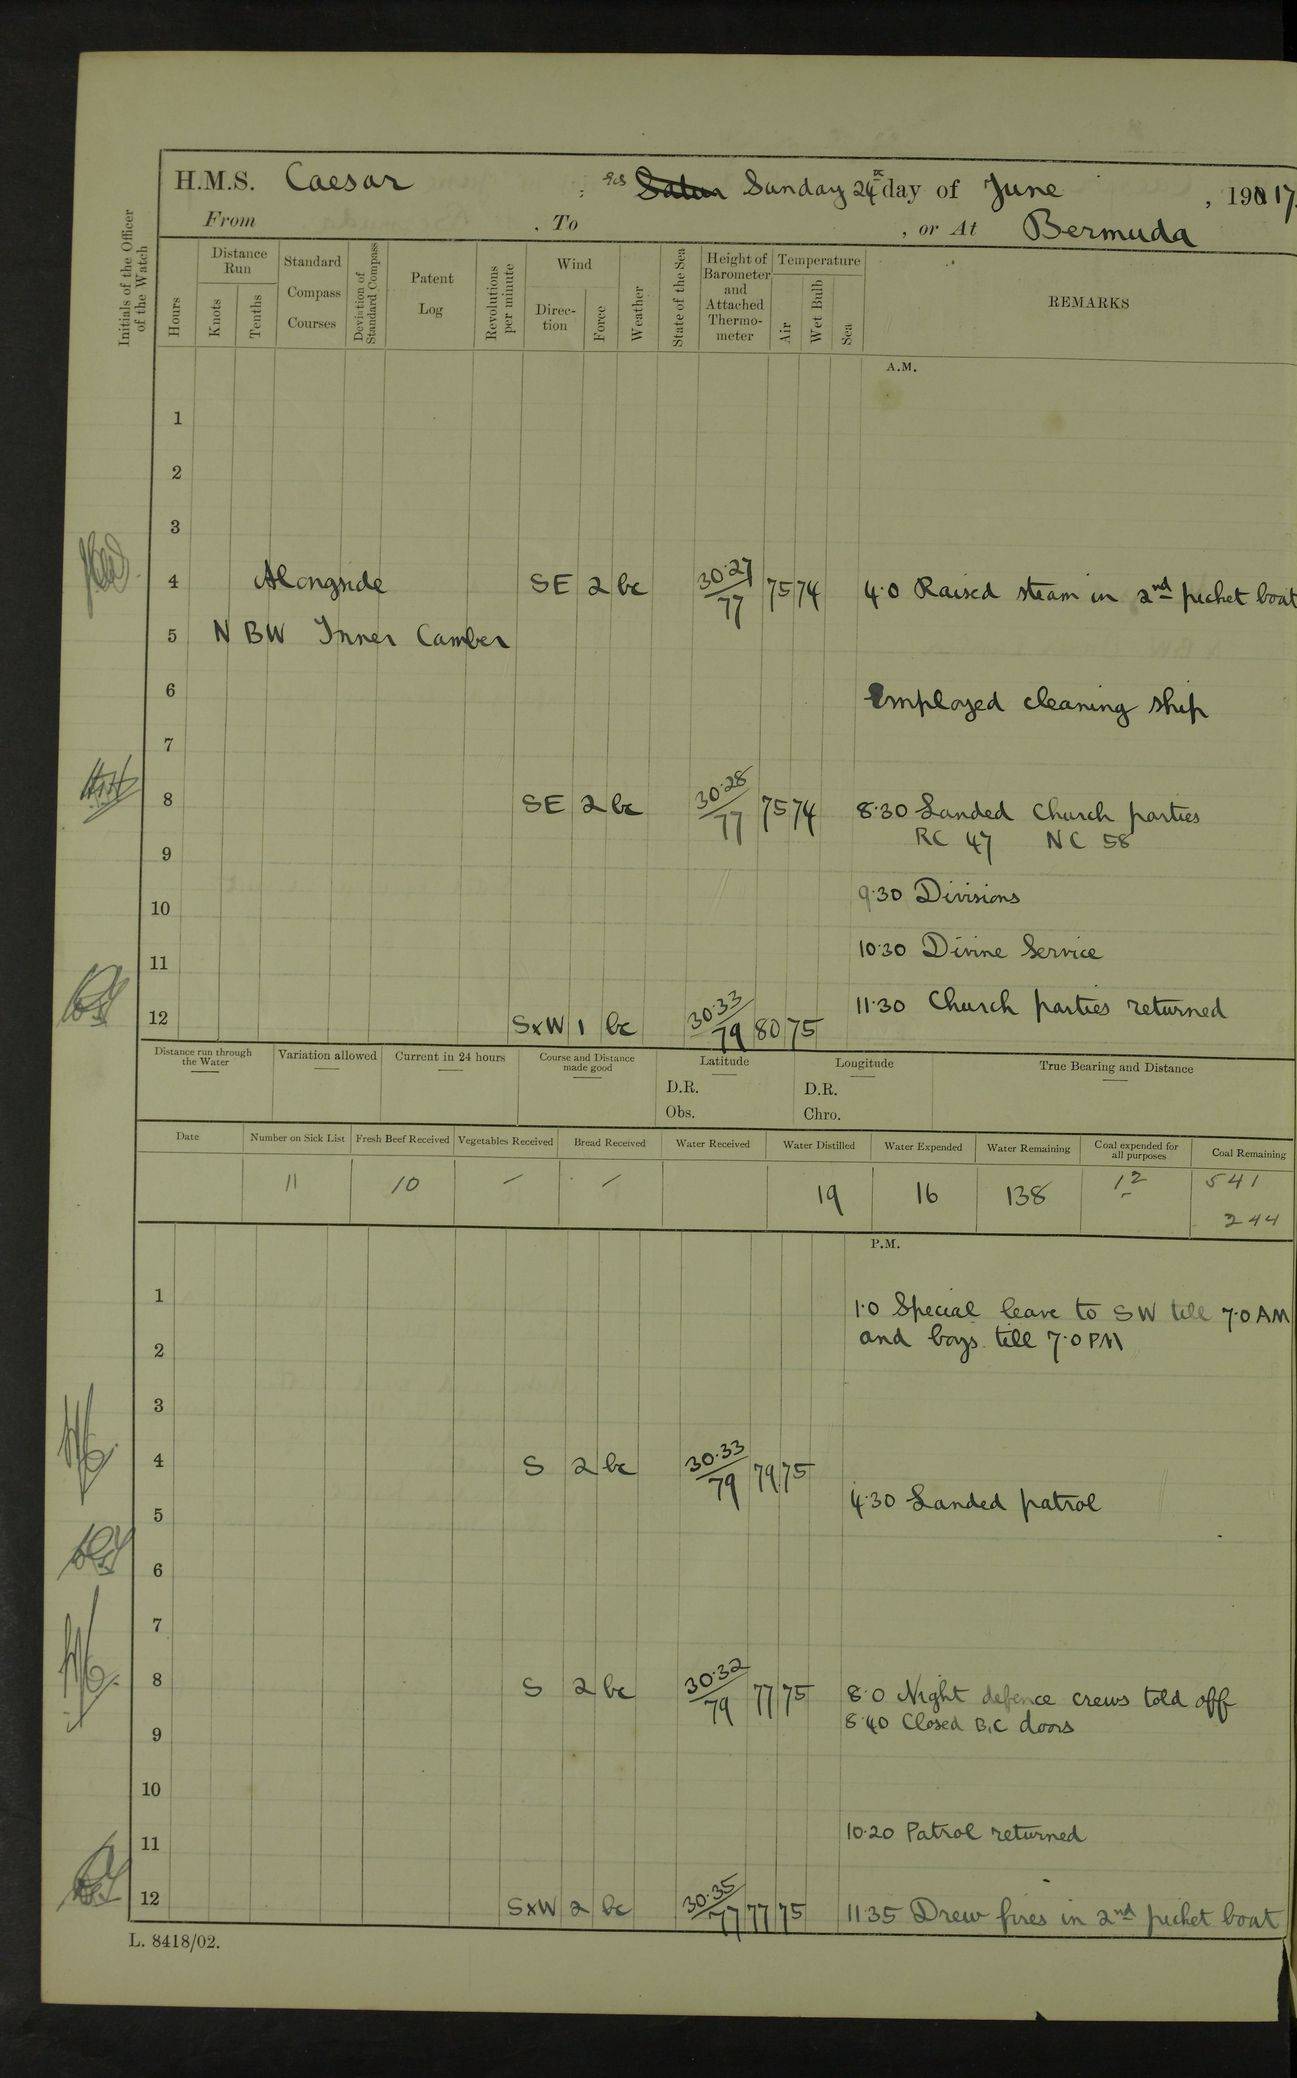 H.M.S. Caesar, Sunday 24th day of June, 1917.
From , To , or At Bermuda
Initials of the Officer of the Watch
Hours
Distance Run
Knots
Tenths
Standard Compass Courses
Deviation of Standard Compass
Patent Log
Revolutions per minute
Wind
Direction
Force
Weather
State of the Sea
Height of Barometer and Attached Thermometer
Temperature
Air
Wet Bulb
Sea
REMARKS
A.M.
1
2
3
4 Alongside SE 2 bc 30.27 77 75 74 4.0 Raised steam in 2nd picket boat
5 N BW Inner Camber
6 Employed cleaning ship
7
8 SE 2 bc 30.28 77 75 74 8.30 Landed Church parties
RC 47 NC 58
9
9.30 Divisions
10
10.30 Divine Service
11
11.30 Church parties returned
12 SxW 1 bc 30.33 79 80 75
Distance run through the Water
Variation allowed
Current in 24 hours
Course and Distance made good
Latitude
D.R.
Obs.
Longitude
D.R.
Chro.
True Bearing and Distance
Date Number on Sick List Fresh Beef Received Vegetables Received Bread Received Water Received Water Distilled Water Expended Water Remaining Coal expended for all purposes Coal Remaining
11 10 – – 19 16 138 12 541
244
P.M.
1 1.0 Special leave to SW till 7.0 AM
and boys till 7.0 PM
2
3
4 S 2 bc 30.33 79 79 75
4.30 Landed patrol
5
6
7
8 S 2 bc 30.32 79 77 75 8.0 Night defence crews told off
8.40 Closed B.C doors
9
10
10.20 Patrol returned
11
12 SxW 2 bc 30.35 77 77 75 11.35 Drew fires in 2nd picket boat
L. 8418/02.